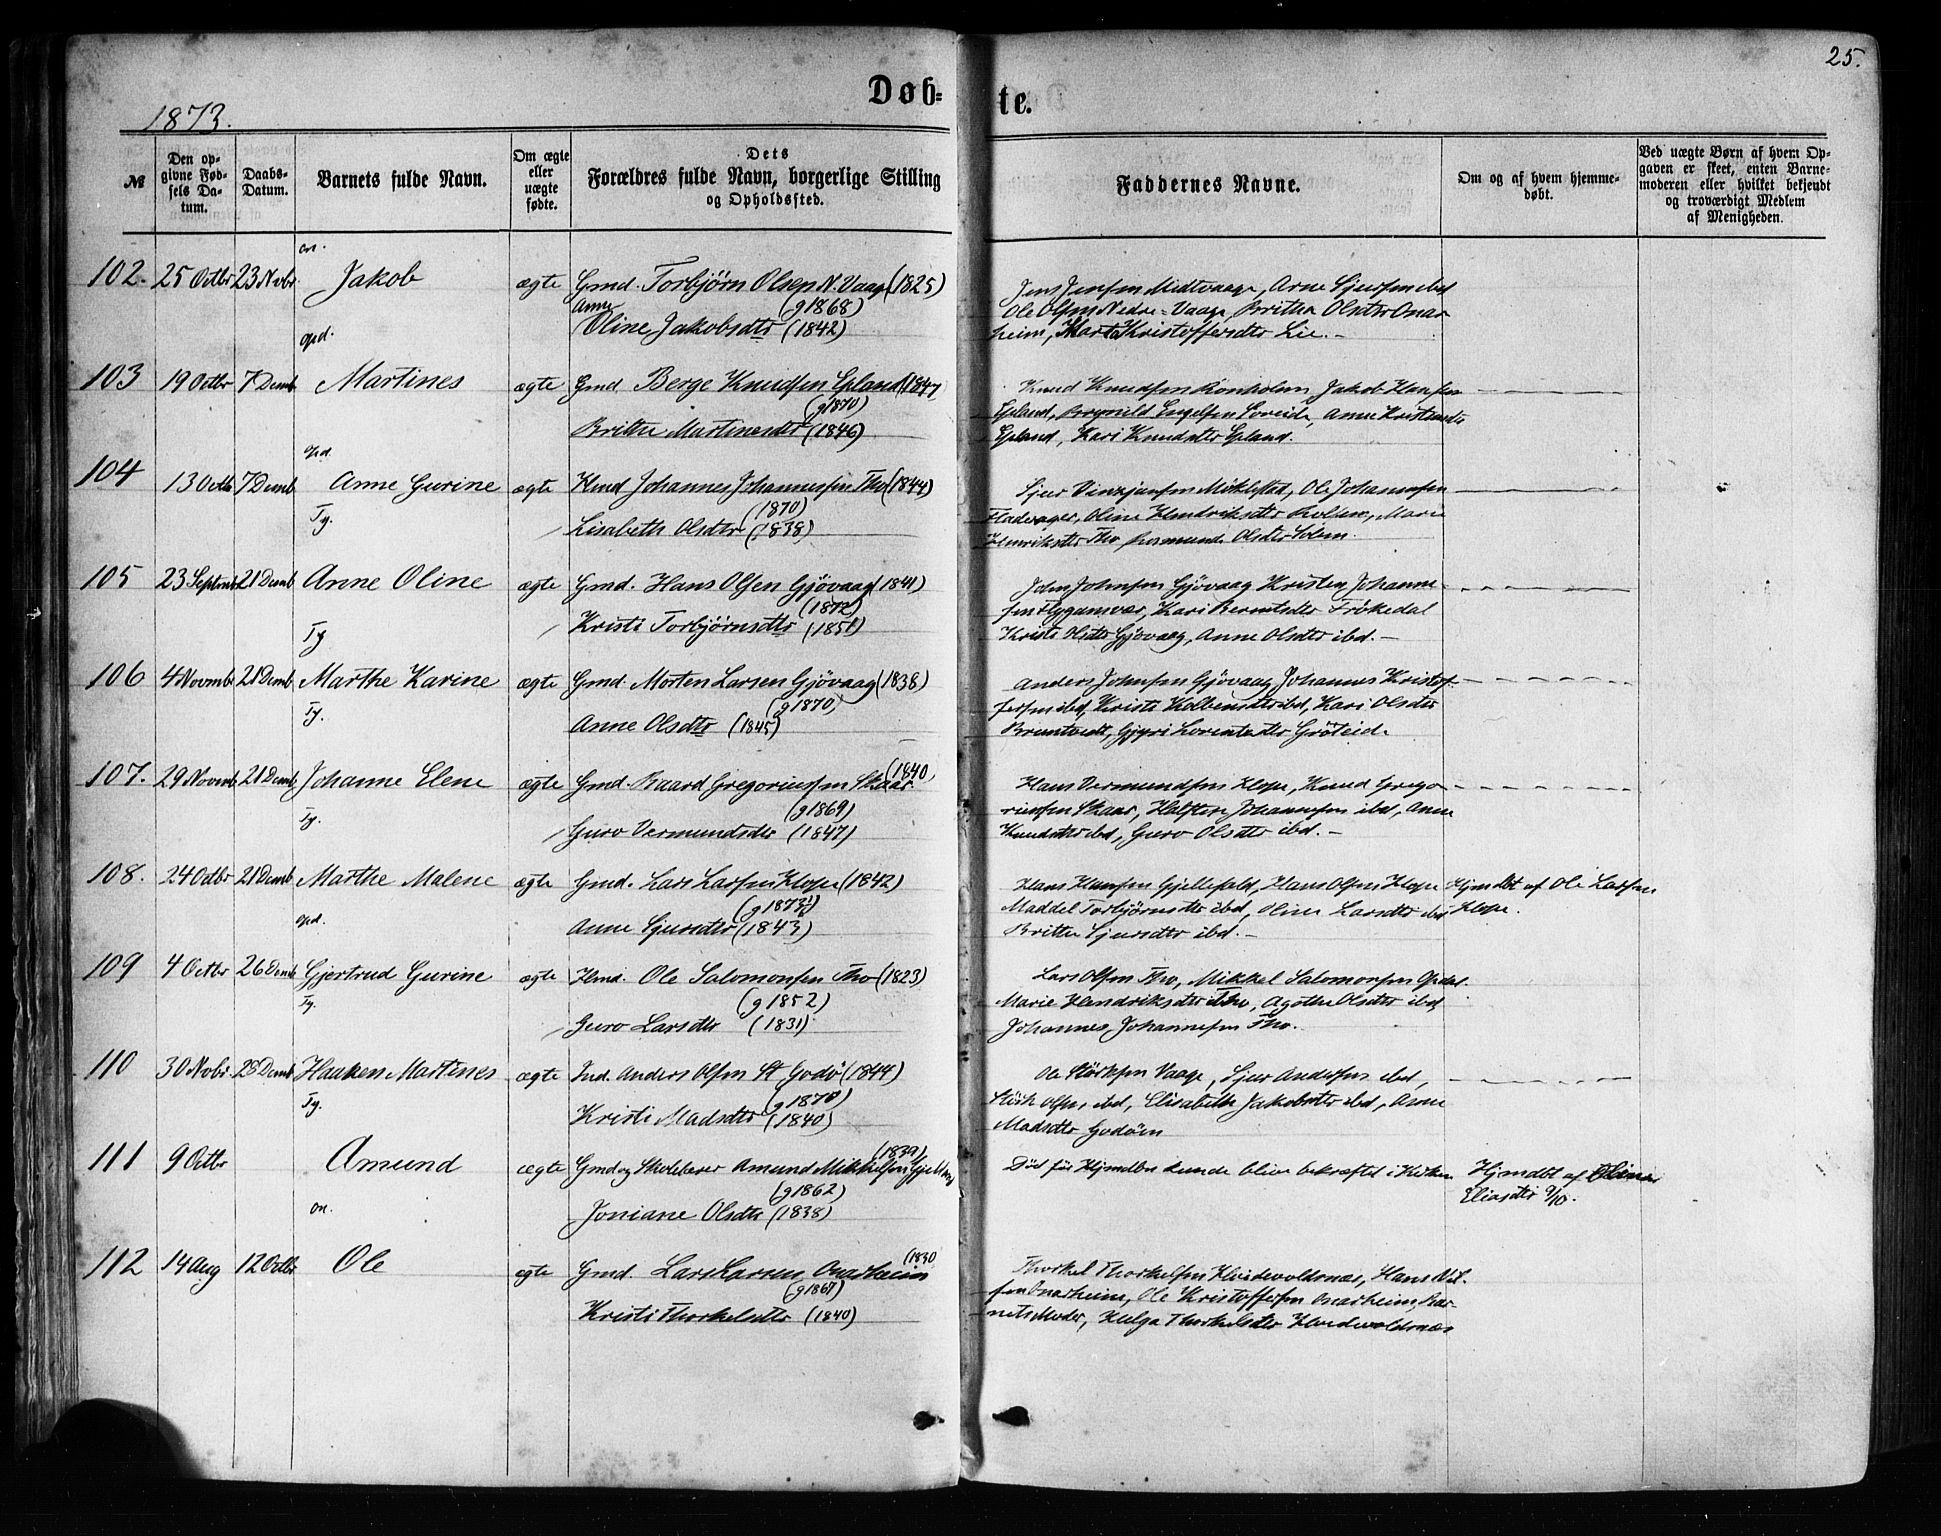 25.
Døb=
te.
1873.
№
Den op-
givne Fød-
sels Da-
tum.
Daabs-
Datum.
Barnets fulde Navn.
Om ægte
eller
uægte
fødte.
Dets
Forældres fulde Navn, borgerlige Stilling
og Opholdssted.
Faddernes Navne.
Om og af hvem hjemme-
døbt.
Ved uægte Børn af hvem Op-
gaven er skeet, enten Barne-
moderen eller hvilket bekjendt
og troværdigt Medlem
af Menigheden.
on.
102. 25 Octbr 23 Nvbr. Jakob ægte Gmd. Torbjørn Olsen N. Vaage (1825)
(g1868)
Anne
Oline Jakobsdtr (1842)
Jens Jensen Midtvaage, Arne Sjursen ibd
Ole Olsen Nedre-Vaage, Britha Olsdtr Onar
heim, Marta Kristoffersdtr Lie. -
opd.
103 19 Octbr 7 Demb Martines ægte Gmd. Berge Knudsen Epland (1847
(g1870)
Britha Martinesdtr (1846)
Knud Knudsen Jakob Hansen
Epland, Engelsen Anna
Epland, Kari Knudsdtr Epland.
opd.
104 13 Octb 7 Demb Anne Gurine ægte Hmd Johannes Johannessen Tho (1844)
(1870)
Ty.
Lisabeth Olsdtr (1838)
Sjur Miklestad, Ole Johannesen
Fladvager, Oline Hendriksdtr Marie
Henriksdtr Tho, Olsdtr
105 23 Septmbr 21 Demb Anne Oline ægte Gmd. Hans Olsen Gjövaag (1841)
(1872)
Ty
Kristi Torbjørnsdtr (1851)
John Johnsen Gjövaag Kristen Johanne
sen Flyganvær, Kari Berntsdtr Frökedal
Kristi Olsdtr Gjøvaag, Anne Olsdtr ibd. -
106 4 Novmb 21 Demb Marthe Karine ægte Gmd. Morten Larsen Gjövaag (1838)
(g1870)
Ty.
Anne Olsdtr (1845)
Anders Johnsen Gjövaag Johannes Kristof-
fersen ibd, Kristi ibd, Kari Olsdtr
Gröteid.
107. 29 Novmb 21 Demb Johanne Elene ægte Gmd. Baard Gregoriussen Skaar (1840,
(g1869)
Ty.
Guro Vermundsdtr (1847)
Hans Vermundsen Klope, Knud Grego
riussen Skaar, Halsten Johannesen ibd, Anna
Knudsdtr ibd, Guro Olsdtr ibd. -
108. 24 Octbr 21 Demb Marthe Malene ægte Gmd. Lars Larsen Klope (1842)
(g1873)
opd.
Anne Sjursdtr (1843)
Hans Hansen Hans Olsen Klope
Maddel Torbjørnsdtr ibd, Oline Larsdtr ibd
Britha Sjursdtr ibd. -
Hjmdbt af Ole Larsen
Klope.
109 4 Octbr 26 Demb Gjertrud Gurine ægte Hmd. Ole Salomonsen Tho (1823)
(g1852)
Ty.
Guro Larsdtr (1831)
Lars Olsen Tho, Mikkel Salomonsen Opdal
Marie Hendriksdtr Tho, Agothe Olsdtr ibd,
Johannes Johannesen Tho.
110 30 Nvbr. 28 Demb Haaken Martines ægte Ind. Anders Olsen St Godö (1844)
(g1870)
Ty.
Kristi Madsdtr (1840)
Ole Störksen Vaage, Sjur Andersen ibd,
Störk Olsen, ibd, Elisabeth Jakobsdtr ibd, Anne
Madsdtr Godöen
111 9 Octbr Amund ægte Gmd og Skolelærer Amund Mikkelsen (1839)
(g1862)
on.
Joniane Olsdtr (1838)
Död för Hjmdben kunde blive bekræftet i Kirken
Hjmdbt af Oline
Eliasdtr 9/10.
112 14 Aug 12 Octbr. Ole ægte Gmd. Lars Larsen Onarheim (1830
(g1867)
Kristi Thorkelsdtr (1840)
Thorkel Thorkelsen Hvidevoldsnæs, Hans Nil-
sen Onarheim, Ole Kristoffersen Onarheim, Bar-
nets Moder, Helga Thorkelsdtr Hvidevoldsnæs